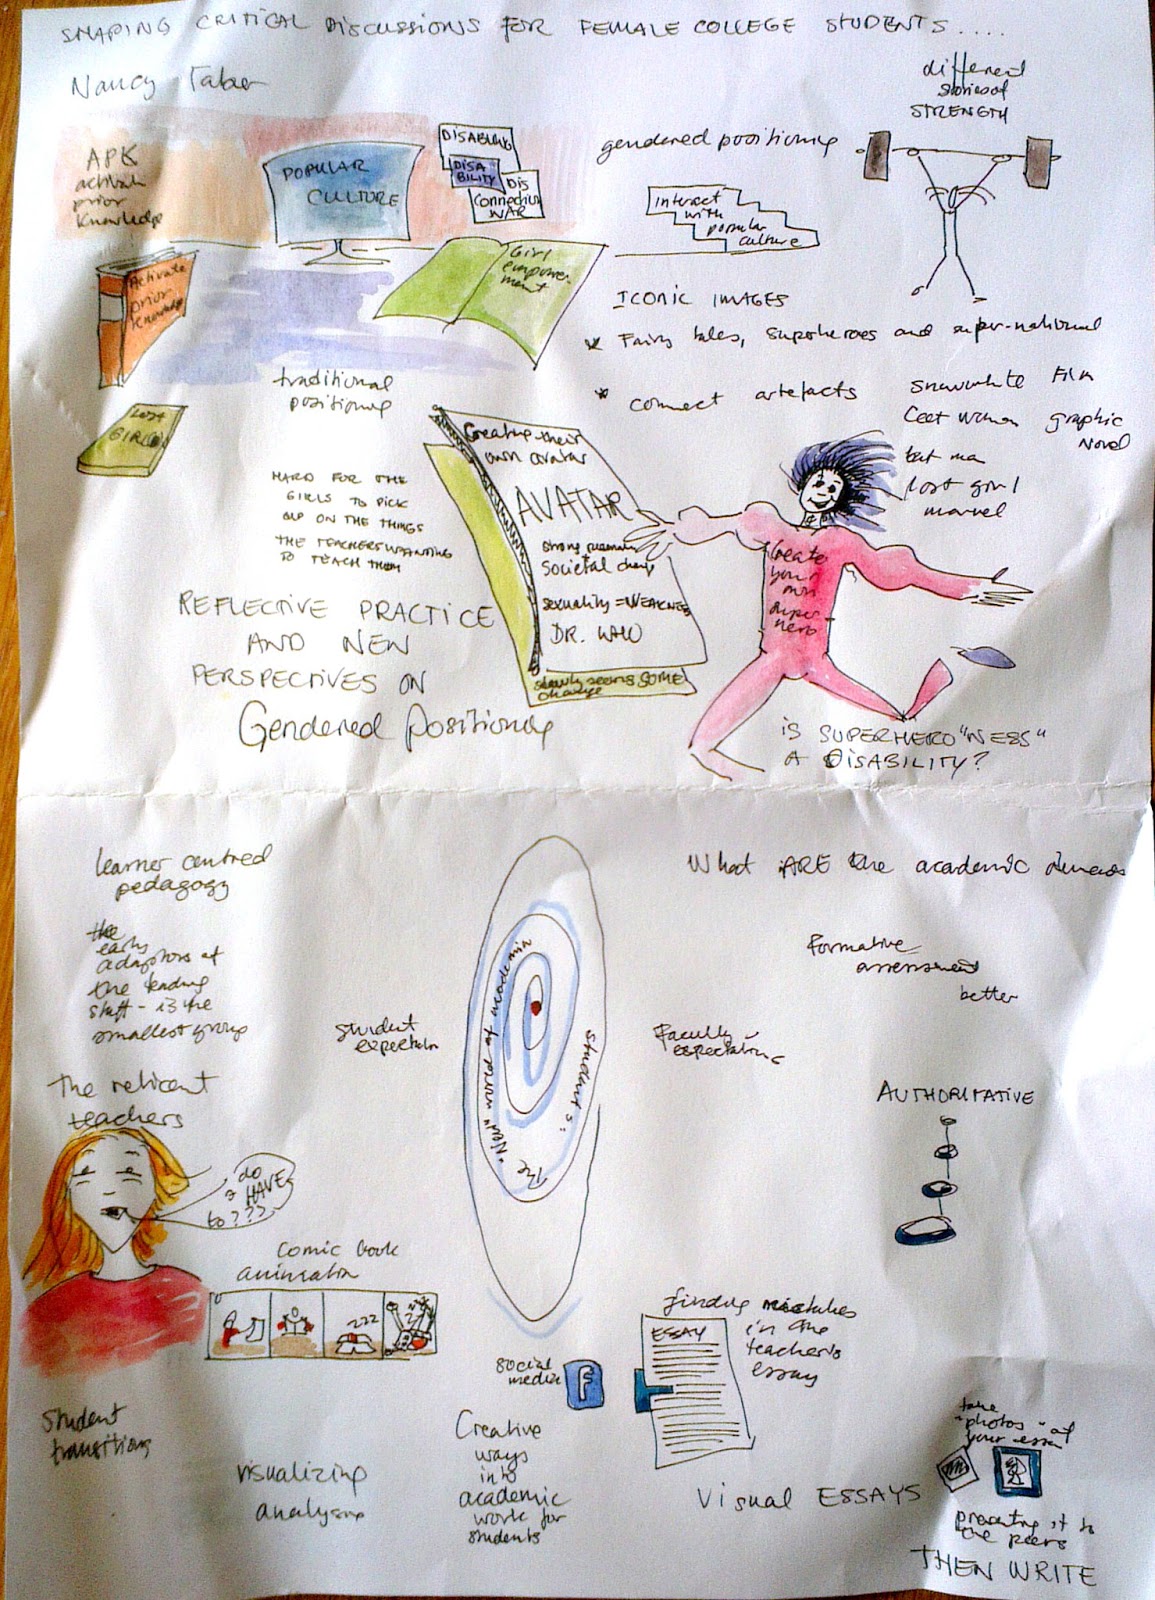 SHAPING CRITICAL DISCUSSIONS FOR FEMALE COLLEGE STUDENTS....
Nancy Taber
different
stories of
STRENGTH
APK
activate
prior
knowledge
POPULAR
CULTURE
DISABLING
DISA
BILITY
DIS
Connection
WAR
gendered positioning
interact
with
popular
culture
Activate
prior
knowledge
Girl
empower-
ment
ICONIC IMAGES
* Fairy tales, superheroes and super-national
* connect artefacts
snowwhite Film
Cat woman graphic
Novel
bat man
lost girl
marvel
traditional
positioning
Lost
GIRL
HARD FOR THE
GIRLS TO PICK
UP ON THE THINGS
THE TEACHERS WANTING
TO TEACH THEM
Creating their
own avatar
AVATAR
strong
societal change
sexuality = WEAKNESS
DR. WHO
slowly seeing SOME
change
Create
your
own
super-
hero
REFLECTIVE PRACTICE
AND NEW
PERSPECTIVES ON
Gendered Positioning
IS SUPERHERO"NESS"
A DISABILITY?
learner centred
pedagogy
What ARE the academic
the
early
adaptors of
the leading
staff - is the
smallest group
Formative
assessment
better
student
expectation
The "New" to academia
students:
Faculty
expectations
The reticent
teachers
AUTHORITATIVE
do
I HAVE
to???
Comic book
animation
zzz
finding mistakes
in the
teacher's
essay
ESSAY
social
media
f
student
transitions
visualizing
analysing
Creative
ways
into
academic
work for
students
Visual ESSAYS
take
"photos" of
your essay
presenting it to
the peers
THEN WRITE